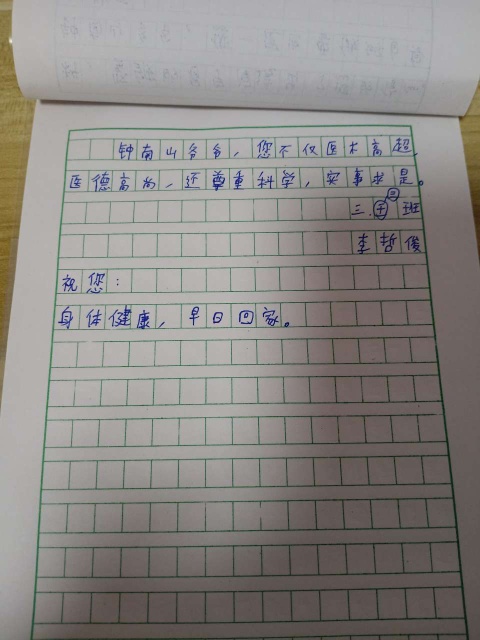 钟南山爷爷，您不仅医术高超，
医德高尚，还尊重科学，实事求是。
三．班
李哲俊
祝您：
身体健康，早日回家。